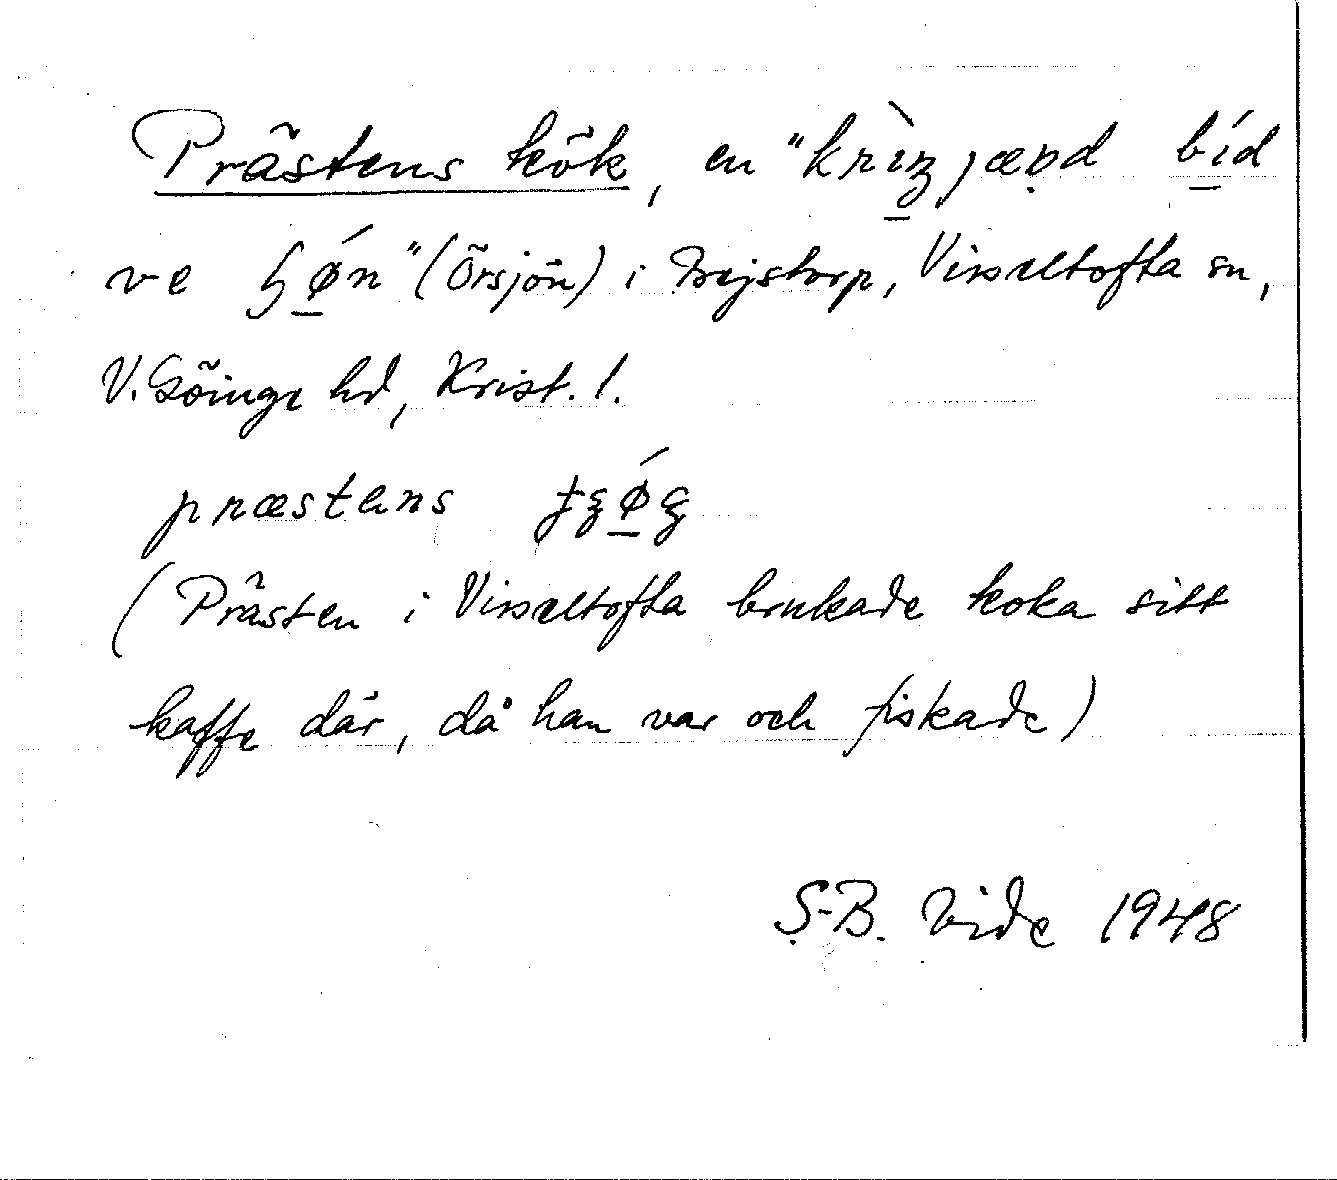 Prästens kök, en "krìŋjæņd bíd
ve ɧǿn" (Örsjön) i Brejstorp, Visseltofta sn,
V. Göinge hd, Krist. l.
præstens
(Prästen i Visseltofta brukade koka sitt
kaffe där, då han var och fiskade)
S-B. Vide 1948